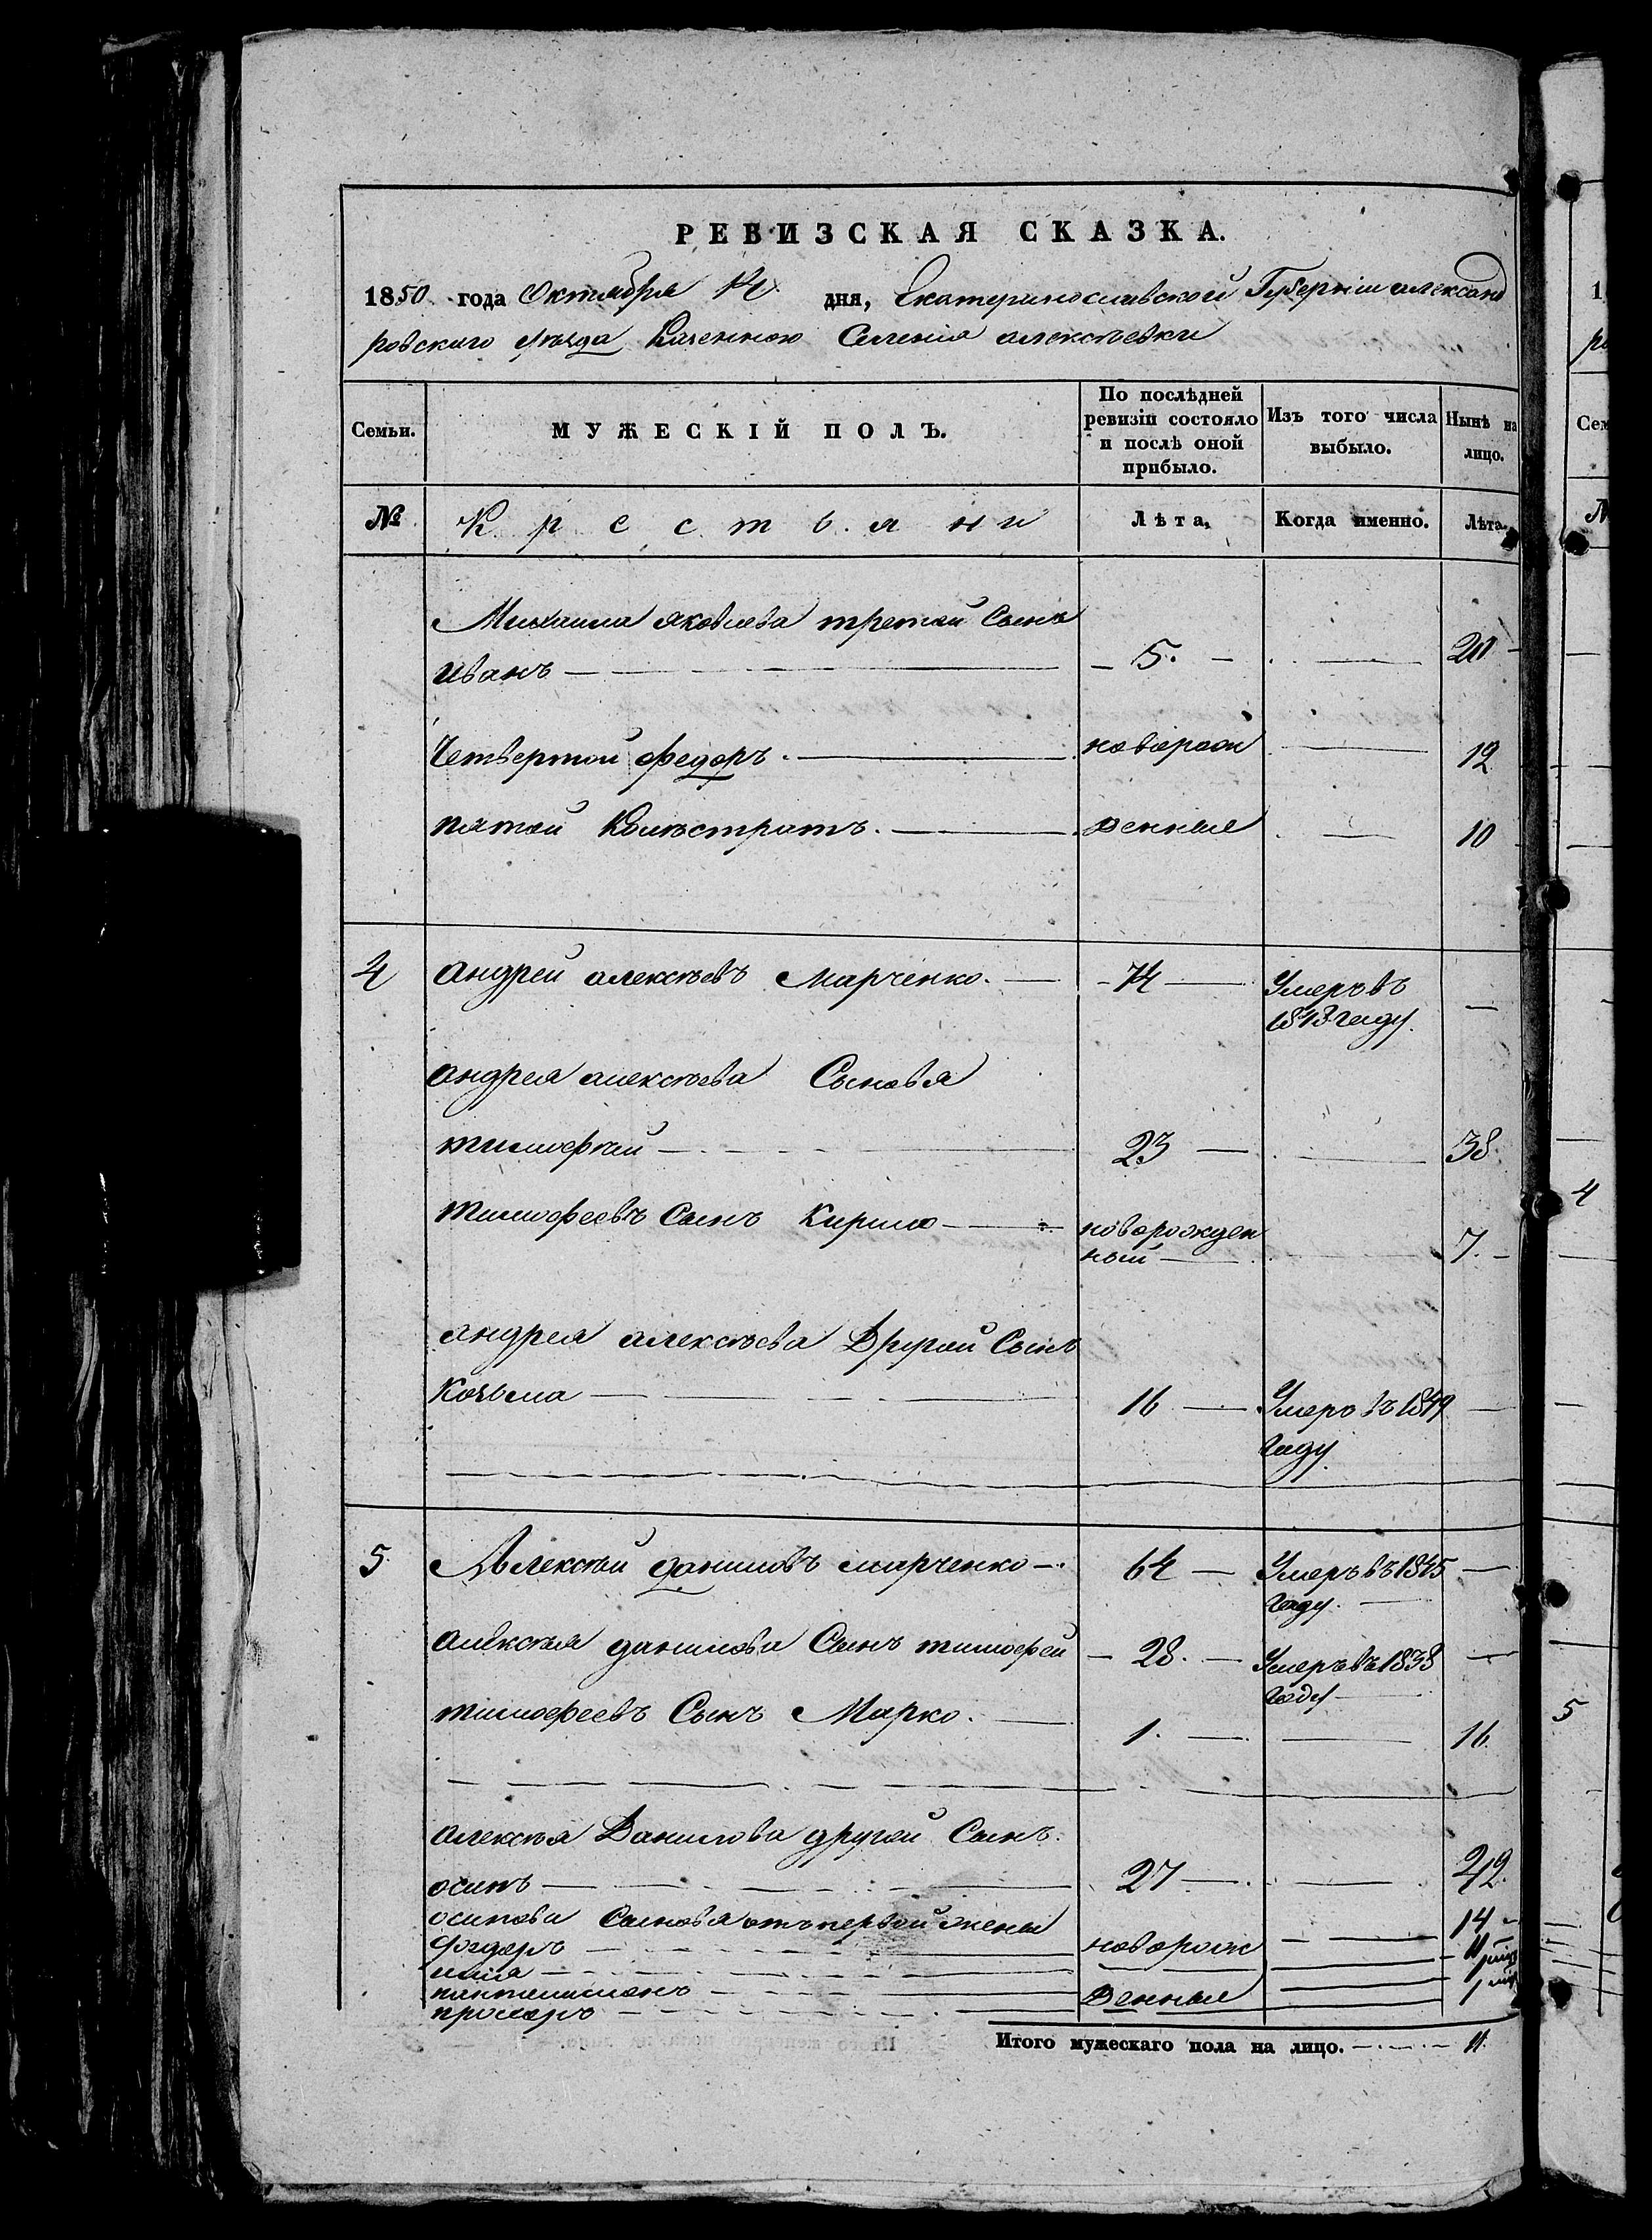 РЕВИЗСКАЯ СКАЗКА.
1850 года Октября 14 дня, Екатеринославской Губерніи александ
ровскаго уѣзда Казенною Селенія алексѣевки
Семьи. МУЖЕСКІЙ ПОЛЪ. По послѣдней ревизіи состояло и послѣ оной прибыло. Изъ того числа выбыло. Нынѣ на лицо.
№ Крестьяни Лѣта, Когда именно. Лѣта.
Михаила яковлева третей Сынъ
иванъ 5. 20
Четвертой федоръ новорож 12
пятой денные 10
4 андрей алексѣевъ Марченко. 74 Умеръ въ
1848 году.
андрея алексѣева Сыновья
тимофѣй 23 38
тимофеевъ Сынъ Кирило новорожден 7.
ный
андрея алексѣева Другой Сынъ
козьма 16 Умеръ въ 1849
году
5 Алексѣй даниловъ марченко 64 Умеръ въ 1845
году.
алексѣя данилова Сынъ тимофей 28. Умеръ въ 1838
году
тимофеевъ Сынъ Марко. 1. 16.
алексѣя Данилова другой Сынъ.
осипъ 27 42.
осипова Сыновья отъ первой жены
Фѣдоръ новорож 14
илья 11
пантелимонъ денные
прохоръ 1
Итого мужескаго пола на лицо. 11.
1
ро
Сем
№
4
5